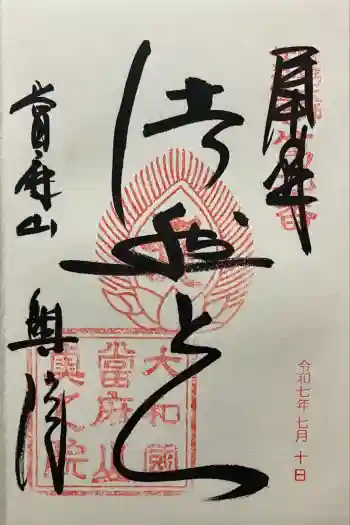 奉拝
令和七年七月十日
法然上人
大和國
當麻山
奧之院
當麻山
奥院